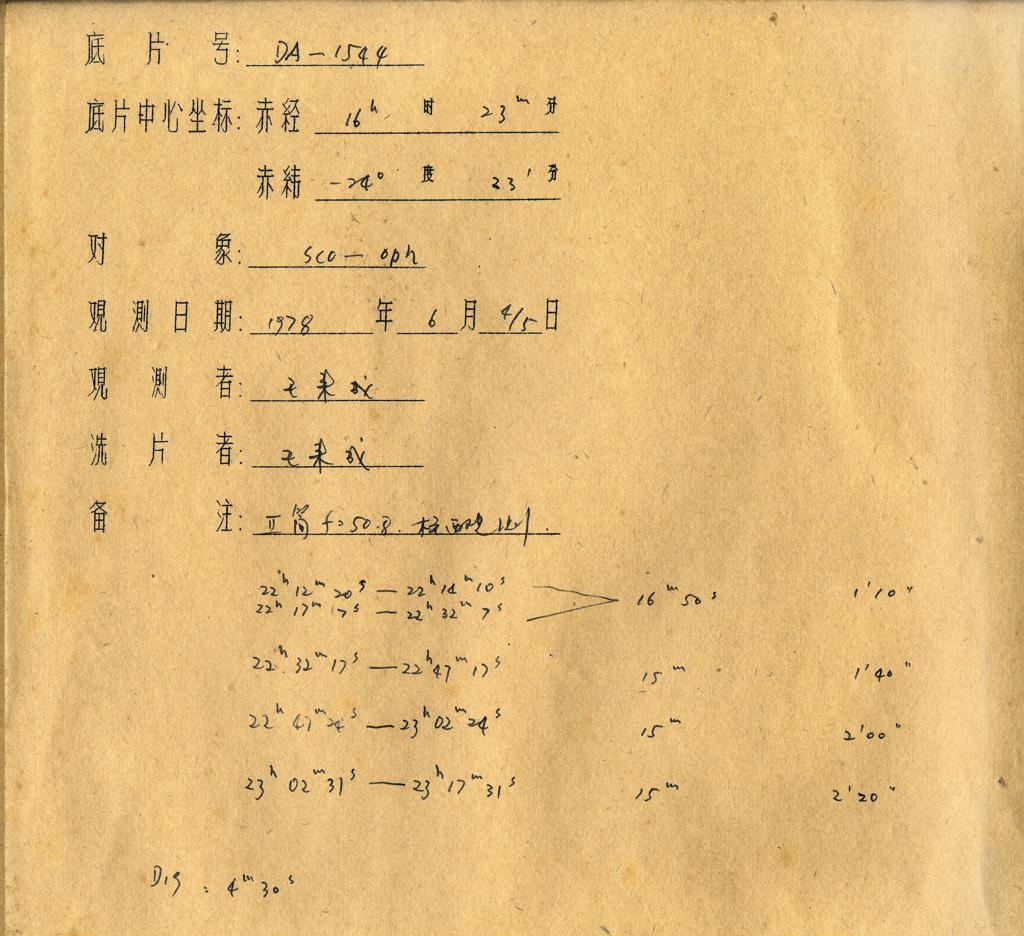 底片号: DA-1544
底片中心坐标: 赤经 16ʰ 时 23ᵐ 分
赤纬 -24° 度 23′ 分
对象: Sco - Oph
观测日期: 1978 年 6 月 4/5 日
观测者: 王来成
洗片者: 王来成
备注: II 筒 f=50.8.
22ʰ 12ᵐ 20ˢ — 22ʰ 14ᵐ 10ˢ
22ʰ 17ᵐ 17ˢ — 22ʰ 32ᵐ 7ˢ 16ᵐ 50ˢ 1′10″
22ʰ 32ᵐ 17ˢ — 22ʰ 47ᵐ 17ˢ 15ᵐ 1′40″
22ʰ 47ᵐ 24ˢ — 23ʰ 02ᵐ 24ˢ 15ᵐ 2′00″
23ʰ 02ᵐ 31ˢ — 23ʰ 17ᵐ 31ˢ 15ᵐ 2′20″
D19 : 4ᵐ 30ˢ